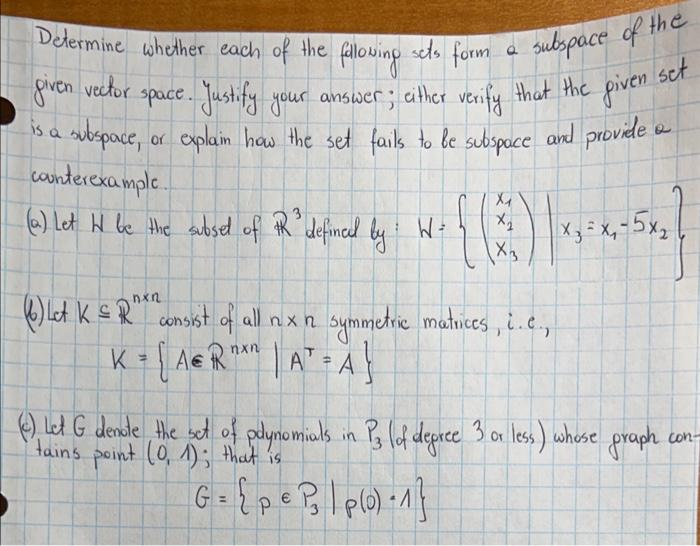 Determine whether each of the following sets form a subspace of the
given vector space. Justify your answer; either verify that the given set
is a subspace, or explain how the set fails to be subspace and provide a
counterexample.
(a) Let W be the subset of ℝ³ defined by: W = { (x₁ x₂ x₃) | x₃ = x₁ - 5x₂ }
(b) Let K ⊆ ℝⁿˣⁿ consist of all n x n symmetric matrices, i.e.,
K = { A ∈ ℝⁿˣⁿ | Aᵀ = A }
(c) Let G denote the set of polynomials in P₃ (of degree 3 or less) whose graph con-
tains point (0, 1); that is
G = { p ∈ P₃ | p(0) = 1 }